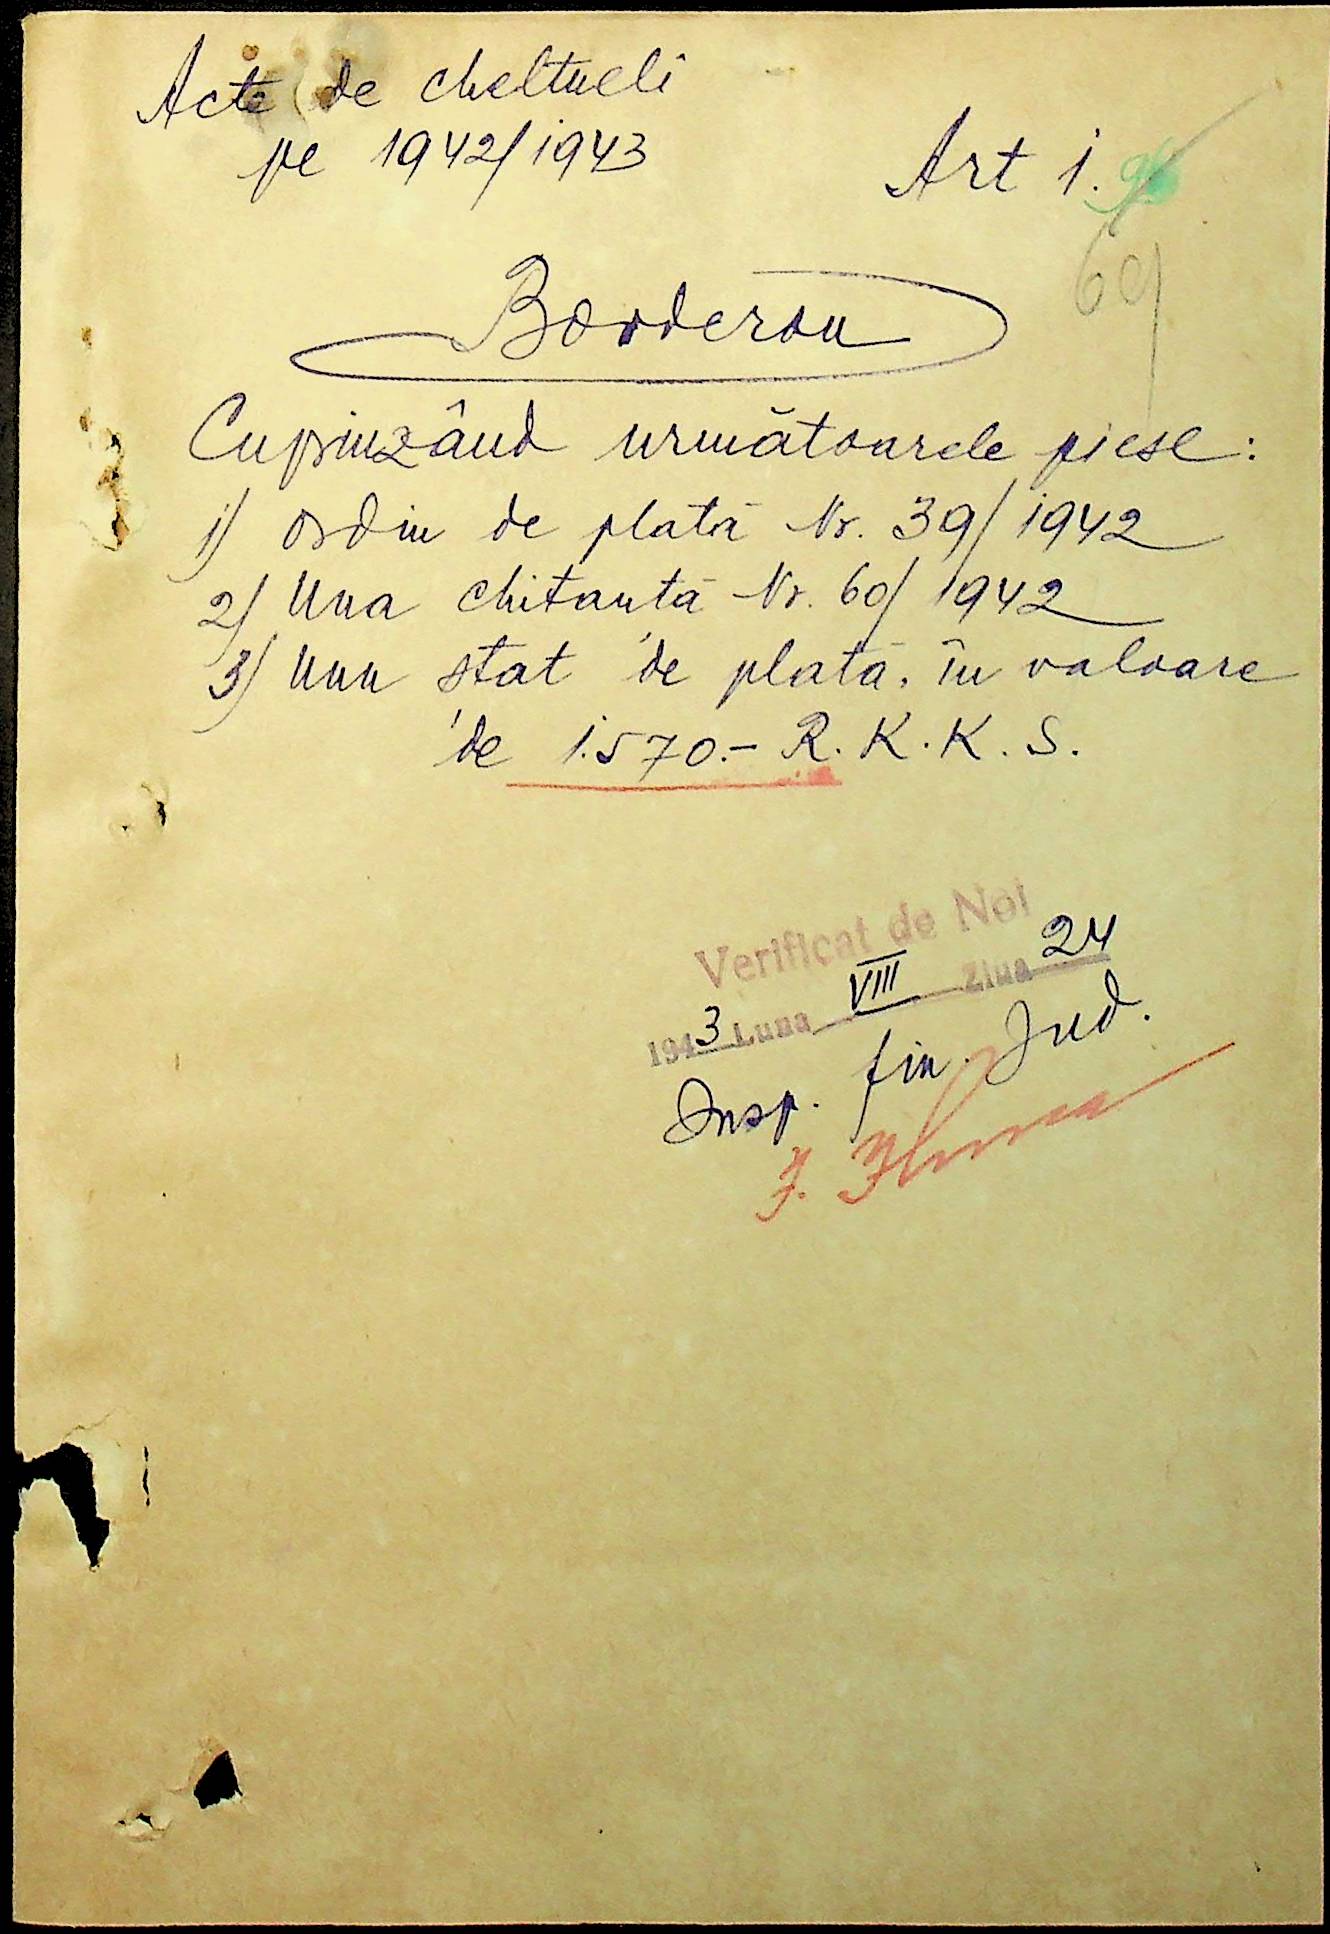 Acte de cheltueli
pe 1942/1943
Art 1.
60
Borderou
Cuprinzând următoarele piese:
1) Ordin de plată Nr. 39/1942
2) Una chitantă Nr. 60/1942
3) Unu stat de plată, în valoare
de 1.570.- R.K.K.S.
Verificat de Noi
1943 Luna VIII Ziua 24
Insp. fin. Jud.